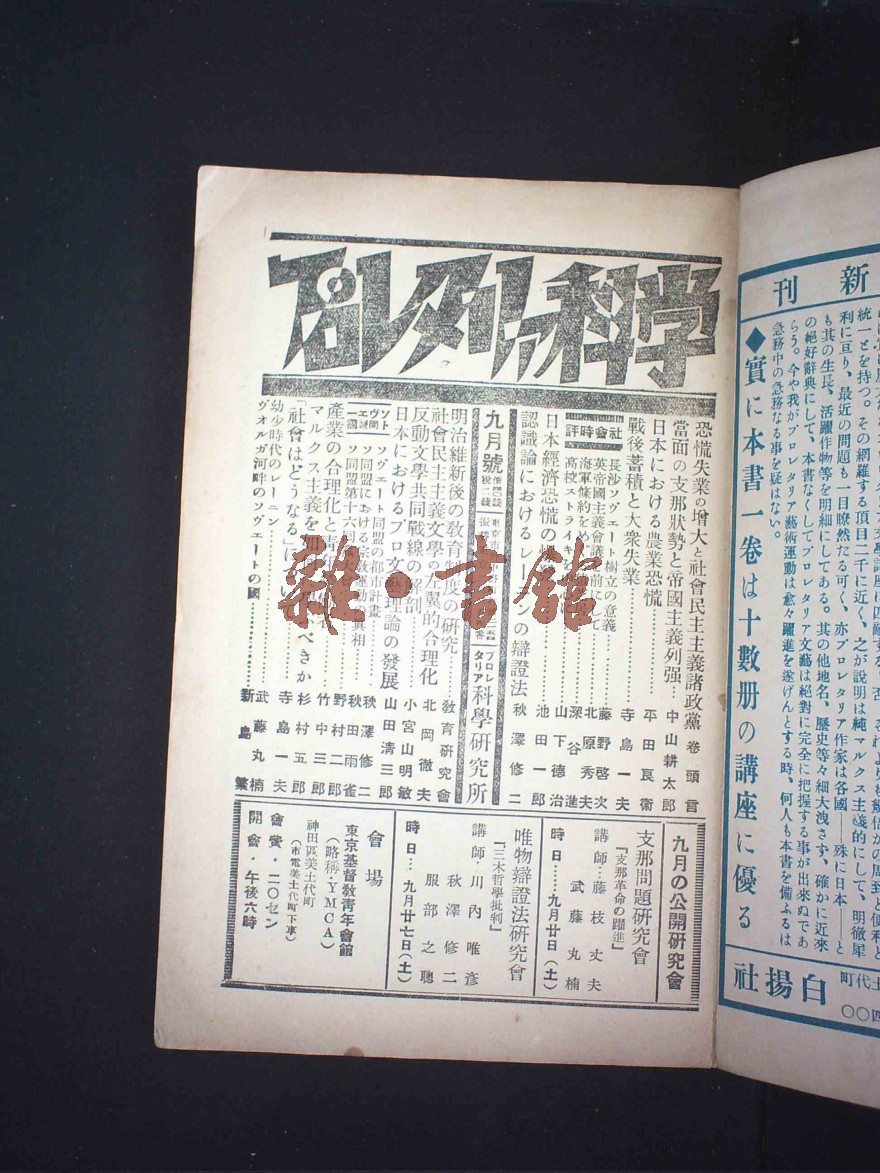 プロレタリア科学
恐慌失業の増大と社會民主主義諸政黨 卷頭言
當面の支那狀勢と帝國主義列强 中山耕太郎
日本における農業恐慌 平田良衛
戰後蓄積と大衆失業 寺島一夫
社會時評
長沙ソヴエート樹立の意義 藤野啓次
英帝國主義會議を前にして 北原秀夫
海軍條約をめ 深谷進
高校ストライキ 山下德治
日本經濟恐慌の 池田一郎
認識論におけるレーニンの辯證法 秋澤修二
九月號
プロレタリア科學硏究所
明治維新後の敎育制度の硏究 敎育硏究會
社會民主主義文學の左翼的合理化 北岡徹夫
反動文學共同戰線の解剖 小宮山明敏
日本におけるプロ文藝理論の發展 山田淸三郎
ソヴエート同盟の都市計畫 秋澤修二
ソ同盟における宗敎運動の眞相 秋田雨雀
ソ同盟第十六回 野村二郎
產業の合理化と靑年 竹中三郎
マルクス主義を如何に べきか 杉村五郎
「社會はどうなる」に 寺島一夫
幼少時代のレーニン 武藤丸楠
ヴオルガ河畔のソヴエートの國 新島繁
九月の公開硏究會
支那問題硏究會
『支那革命の躍進』
講師・藤枝丈夫
武藤丸楠
時日……九月廿日(土)
唯物辯證法硏究會
『三木哲學批判』
講師・川內唯彥
秋澤修二
服部之聰
時日…九月廿七日(土)
會場
東京基督敎靑年會館
(略稱・YMCA)
神田區美土代町
(市電美土代町下車)
會費・二〇セン
開會・午後六時
雜・書館
新刊
統一とを持つ。その網羅する項目二千に近く、之が說明は純マルクス主義的にして、明徹犀
利に亘り、最近の問題も一目瞭然たる可く、亦プロレタリア作家は各國——殊に日本——と
も其の生長、活躍作物等を明細にしてある。其の他地名、歷史等々細大洩さず、確かに近來
の絕好辭典にして、本書なくしてプロレタリア文藝は絕對に完全に把握する事が出來ぬであ
らう。今や我がプロレタリア藝術運動は愈々躍進を遂げんとする時、何人も本書を備ふるは
急務中の急務なる事を疑はない。
◆實に本書一卷は十數册の講座に優る
白揚社
土代町
四〇〇